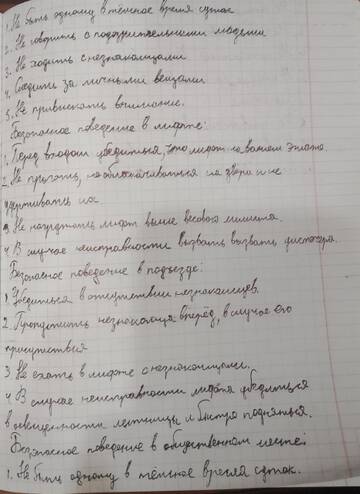 1. Не быть одному в тёмное время суток
2. Не говорить с подозрительными людьми
3. Не ходить с незнакомцами
4. Следить за личными вещами
5. Не привлекать внимание.
Безопасное поведение в лифте:
1. Перед входом убедиться, что лифт на вашем этаже.
2. Не прыгать, не облокачиваться на двери и не
держивать их.
3. Не нагружать лифт выше весова лимита.
4. В случае неисправности вызвать вызвать диспетчера.
Безопасное поведение в подъезде:
1. Убедиться в отсутствии незнакомцев.
2. Пропустить незнакомца вперёд, в случае его
присутствия
3. Не ехать в лифте с незнакомцами.
4. В случае неисправности лифта убедиться
в освещенности лестницы и быстро подняться.
Безопасное поведение в общественном месте:
1. Не быть одному в тёмное время суток.